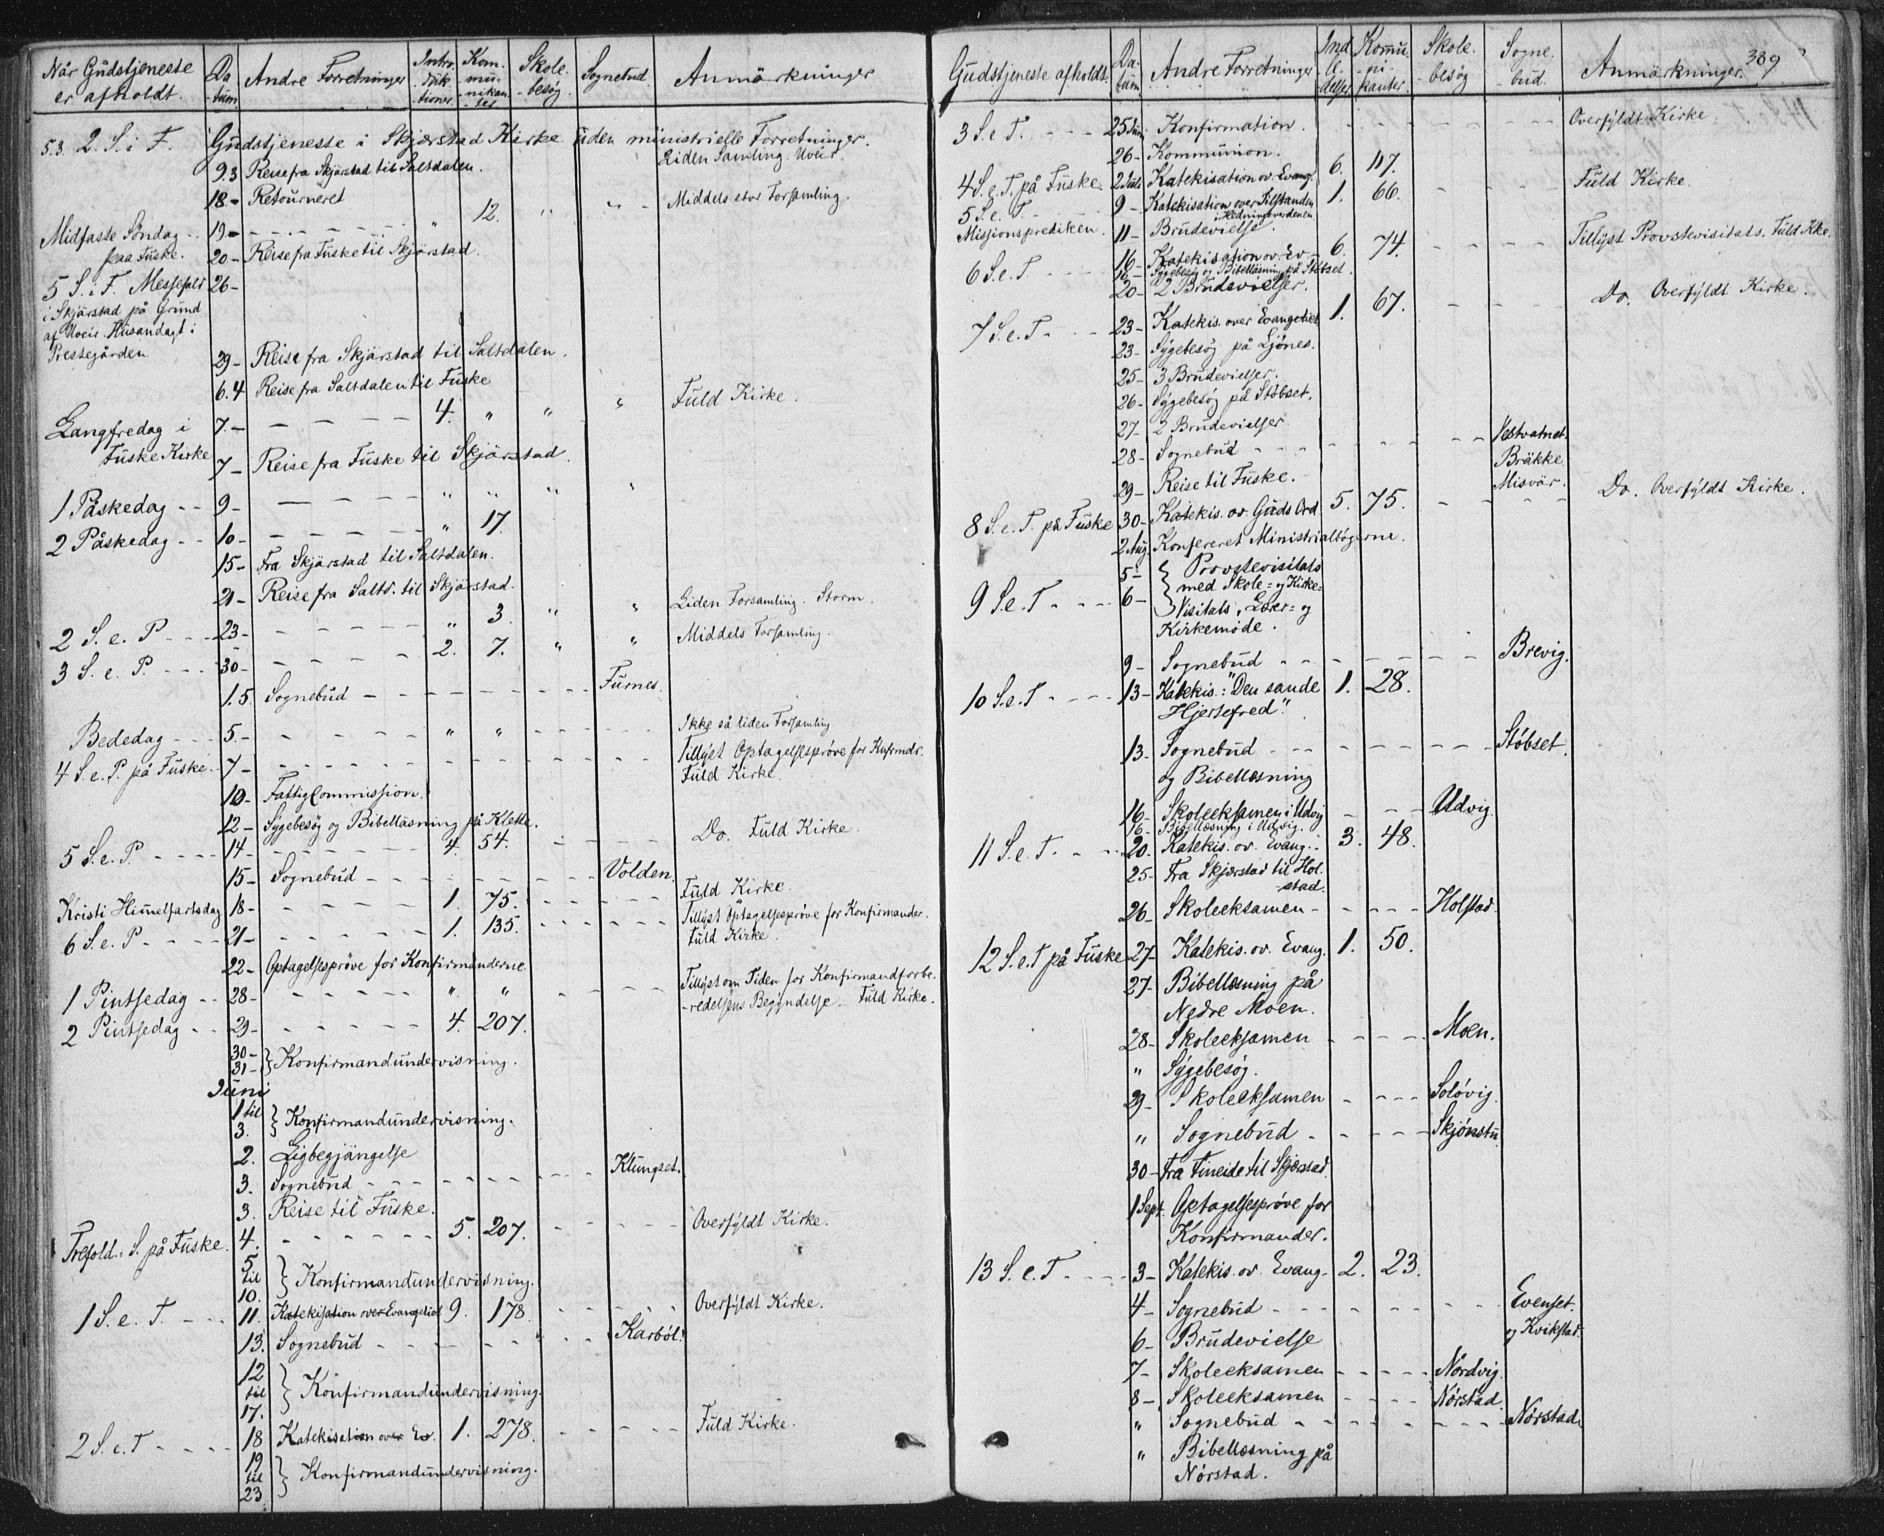 Når Gudstjeneste er afholdt. | Datum | Andre Forretninger | Introduktioner | Kommunikantes | Skolebesøg | Sognebud | Anmärkninger
5.3. 2. S. i F. Gudstjeneste i Skjærstad Kirke uden ministrielle Forretninger.
Liden Samling. Uveir.
9.3 Reise fra Skjärstad til Saltdalen.
18 - Retourneret
Midfaste Söndag paa Fuske. 19 - 12. " " - Middels stor Forsamling.
20 - Reise fra Fuske til Skjärstad.
5 S. i F. Messefald 26 -
i Skjärstad på Grund
af Uveir. Husandagt i
Prestegården
29 - Reise fra Skjärstad til Saltdalen.
6.4 Reise fra Saltdalen til Fuske
Langfredag i Fuske Kirke 7. - 4. " " " Fuld Kirke.
7 - Reise fra Fuske til Skjärstad.
1 Påskedag - - 9 - " " " "
2 Påskedag - - 10 - " 17.
15 - Fra Skjärstad til Saltdalen.
21 - Reise fra Saltd. til Skjärstad.
2 S. e. P. - - 23 - " 3. " " Liden Forsamling. Storm.
3 S. e. P. - - 30 - 2. 7. " " Middels Forsamling.
1.5. Sognebud - - - Furnes.
Bededag - - 5. - " " - Ikke så liden Forsamling
4 S. e. P. på Fuske. 7 - - - Tillyst Optagelsesprøve for Knfrmdr.
Fuld Kirke.
10 - Fattig Commission.
12 - Sygebesøg og Bibelläsning på Klette.
5 S. e. P. - - 14 - 4. 54. - - Do. Fuld Kirke.
15 - Sognebud - - - Volden.
Kristi Himelfartsdag 18 - 1. 75. - - Fuld Kirke.
6 S. e. P. - - 21 - 1. 135. - - Tillyst Optagelsesprøve for Konfirmander.
Fuld Kirke.
22 - Optagelsesprøve for Konfirmanderne
1 Pintsedag - - 28 - " " - - Tillyst om Tiden for Konfirmandforbe-
-redelsens Begyndelse. Fuld Kirke.
2 Pintsedag - - 29 - 4. 207.
30 -
31 - } Konfirmandundervisning.
Juni
1 til
3. } Konfirmandundervisning.
2. Ligbegjängelse
3. Sognebud - - - Klungset.
3. Reise til Fuske.
Trefold.: S. på Fuske. 4. - - 5. 207. - - Overfyldt Kirke.
5
til
10. } Konfirmandundervisning.
1 S. e. T. - - 11. Katekisation over Evangeliet 9. 178. - - Overfyldt Kirke.
13. Sognebud - - - Karbøl.
12
til
17. } Konfirmandundervisning.
2 S. e. T - - 18 Katekisation over Ev. 1. 278. - - Fuld Kirke.
19
til
23. } Konfirmandundervisning.
339
Gudstjeneste afholdt. | Datum | Andre Forretninger | Indledelser | Komunikanter. | Skolebesøg | Sognebud. | Anmärkninger.
3 S. e. T. - - - 25 Juni Konfirmation. - - - Overfyldt Kirke.
26 - Kommunion.
4 S. e. T. på Fuske. 2 Juli Katekisation ov. Evang. 6. 117. - - Fuld Kirke.
5 S. e. T. - - 9 - Katekisation over Tilstanden i Hedningeverdenen 1. 66.
Missionsprediken. 11 - Brudevielse.
6 S. e. T - - 16 - Katekisation ov. Ev - 6. 74. - - Tillyst Provstevisitats. Fuld Kke.
16 - Sygebesøg og Bibelläsning på Støbset.
20 - 2 Brudevielser.
7 S. e. T - - 23 - Katekis. over Evangeliet 1. 67. - - Do. Overfyldt Kirke.
23 - Sygebesøg på Ljønes.
25 - 3 Brudevielser.
26 - Sygebesøg på Støbset.
27 - 2 Brudevielser.
28 - Sognebud - - - Vestvatnet.
Bräkke
29 - Reise til Fuske. Misvär.
8 S. e. T. på Fuske 30 - Katekis. ov. Guds Ord. 5. 75. - - Do. Overfyldt Kirke.
2 Aug. Konfereret Ministrialbøgerne.
5 - { Provstevisitats
9 S. e. T - - 6 - med Skole = og Kirke =
Visitats, Lærer = og
Kirkemøde.
9 - Sognebud - - - Brevig.
10 S. e. T - - 13 - Katekis.: "Den sande 1. 28.
Hjertefred".
13. Sognebud - - - Støbset.
og Bibellæsning
16 - Skoleeksamen i Udvig - - Udvig.
16 - Bibellæsning i Udvig.
11 S. e. T. - - 20. Katekis. ov. Evang. - 3. 48.
25 - Fra Skjærstad til Hol-
stad.
26 - Skoleeksamen - - - Holstad
12 S. e. T på Fuske 27 - Katekis. ov. Evang. 1. 50.
27 - Bibellæsning på
Nedre Moen.
28 - Skoleeksamen - - - Moen.
" Sygebesøg.
29 - Skoleeksamen - - - Soløvig.
" Sognebud - - - Skjønstu
30 - Fra Fineide til Skjærstad
1 Sept. Optagelsesprøve for
Konfirmander.
13 S. e. T - - 3 - Katekis. ov. Evang - 2. 23.
4 - Sognebud - - - Evenset.
og Kvikstad.
6 - Brudevielse
7 - Skoleeksamen - - - Nordvig.
8 - Skoleeksamen - - - Nørstad.
" Sognebud - - - Nørstad.
" Bibellæsning på
Nørstad.